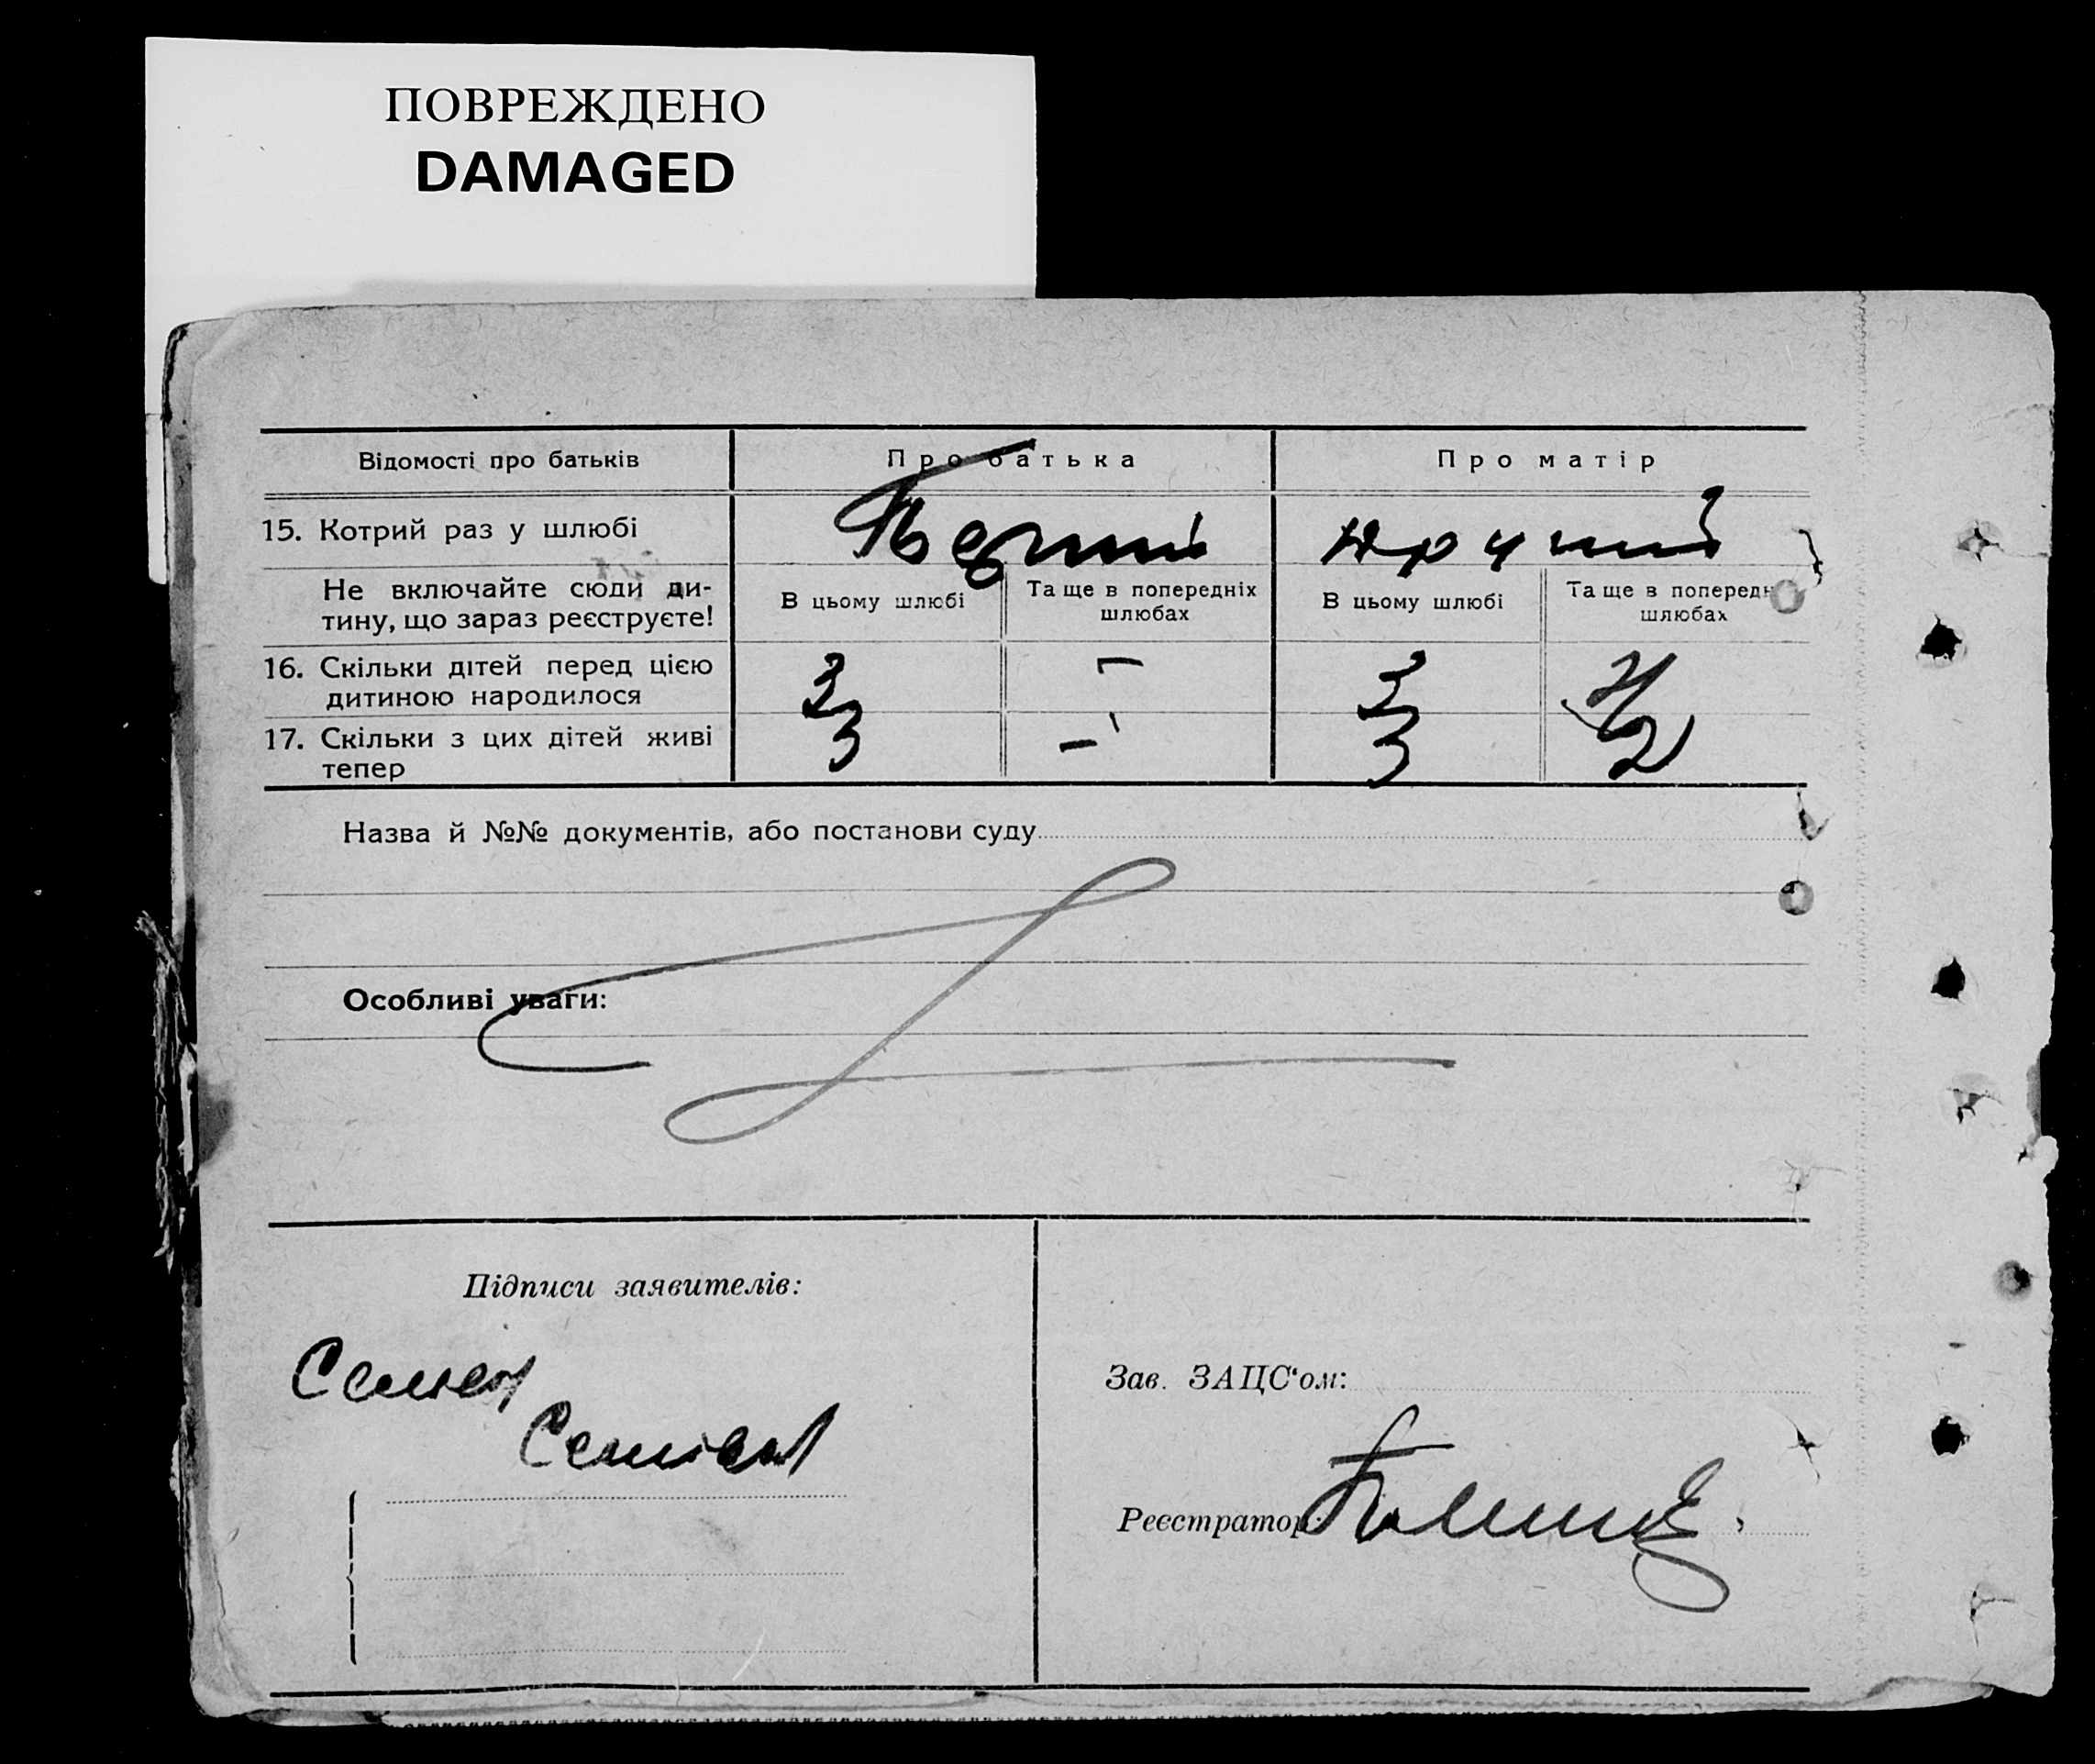 ПОВРЕЖДЕНО
DAMAGED
Відомості про батьків
Про батька
Про матір
15. Котрий раз у шлюбі
Не включайте сюди ди-
тину, що зараз реєструєте!
В цьому шлюбі
Та ще в попередніх
шлюбах
В цьому шлюбі
Та ще в поперед
шлюбах
16. Скільки дітей перед цією
дитиною народилося
3 – 3
17. Скільки з цих дітей живі
тепер
3 – 3 2
Назва й №№ документів, або постанови суду
Особливі уваги:
Підписи заявителів:
Зав. ЗАЦС'ом:
Реєстратор: